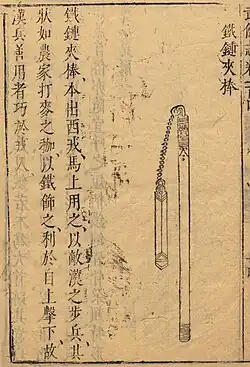 鐵鏈夾棒
鐵鏈夾棒本出西戎馬上用之以敵漢之步兵其
狀如農家打麥之枷以鐵飾之利於自上擊下故
漢兵善用者巧於戎人